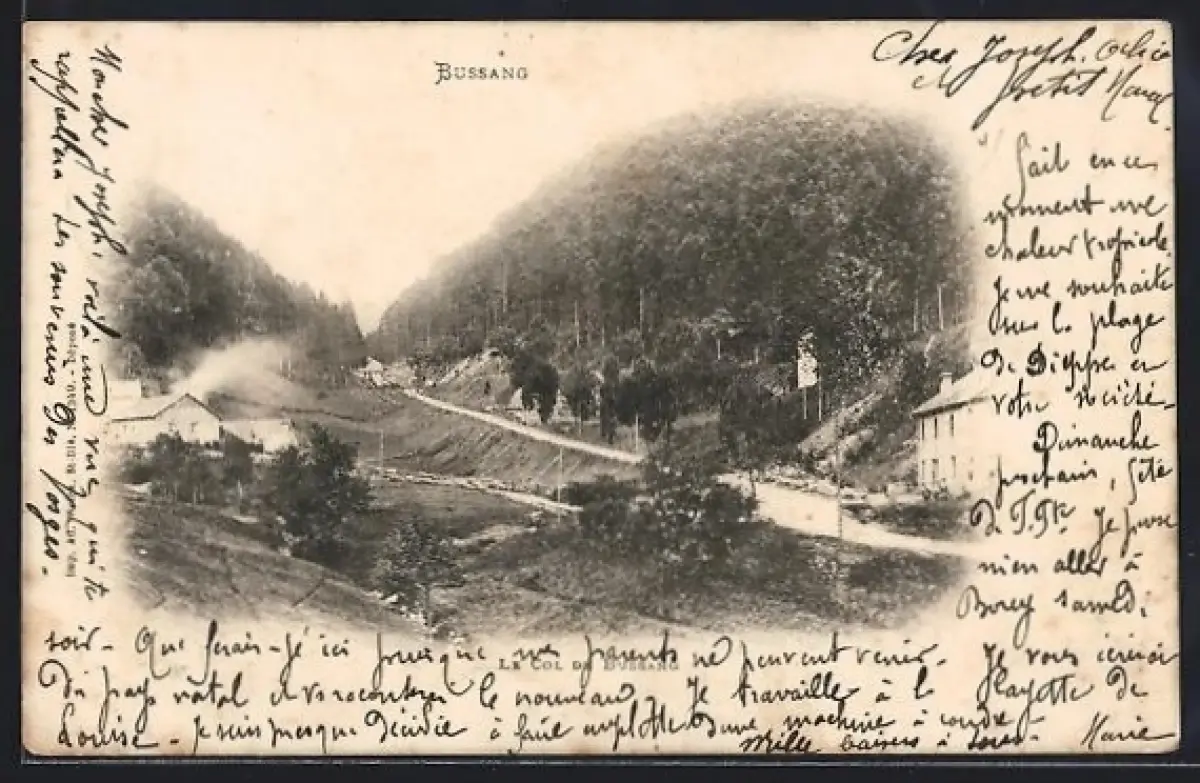 BUSSANG
Cher Joseph, Océcie
et petit Marcel
Fait en ce
moment une
chaleur tropicale.
Je me souhaite
sur la plage
de Dieppe en
votre société.
Dimanche
prochain, fête
de
Je pense
m'en aller à
Borey samedi
soir - Que ferais-je ici puisque mes parents ne peuvent venir. Je vous écrirai
du pays natal et vs raconterai le nouveau. Je travaille à la layette de
Louise - Je suis presque décidée à faire emplette d'une machine à coudre
Mille baisers à tous - Marie
Mon cher Joseph, voilà une vue qui te
rappellera les souvenirs des Vosges -
LE COL DE BUSSANG